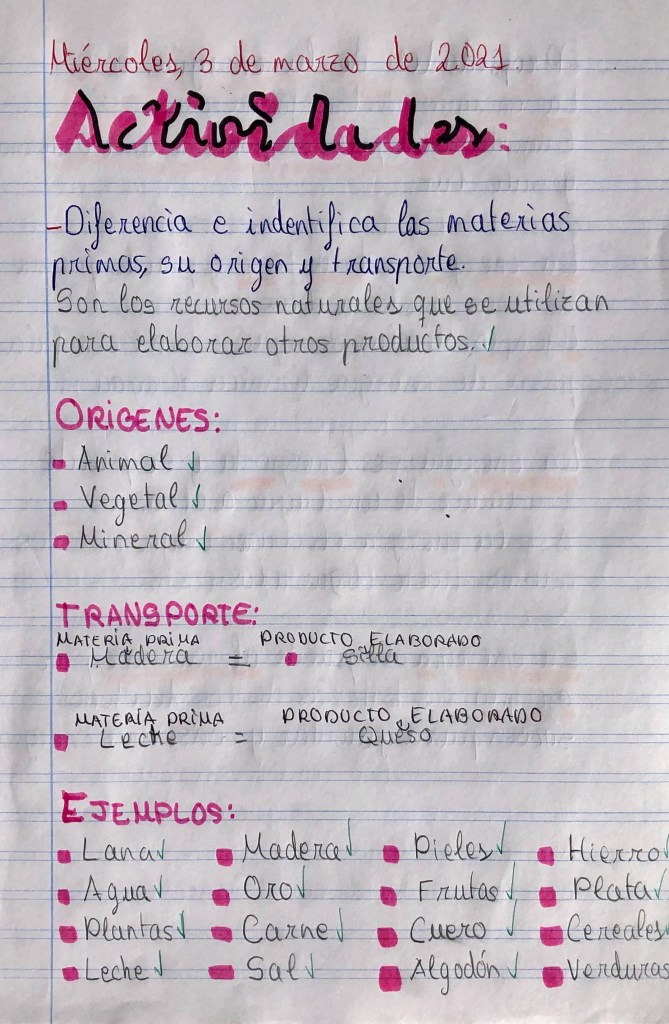 Miércoles, 3 de marzo de 2021.
Actividades:
-Diferencia e indentifica las materias
primas, su origen y transporte.
Son los recursos naturales que se utilizan
para elaborar otros productos.
ORIGENES:
Animal
Vegetal
Mineral
TRANSPORTE:
MATERIA PRIMA PRODUCTO ELABORADO
Madera = Silla
MATERIA PRIMA PRODUCTO ELABORADO
Leche = Queso
EJEMPLOS:
Lana Madera Pieles Hierro
Agua Oro Frutas Plata
Plantas Carne Cuero Cereales
Leche Sal Algodón Verduras